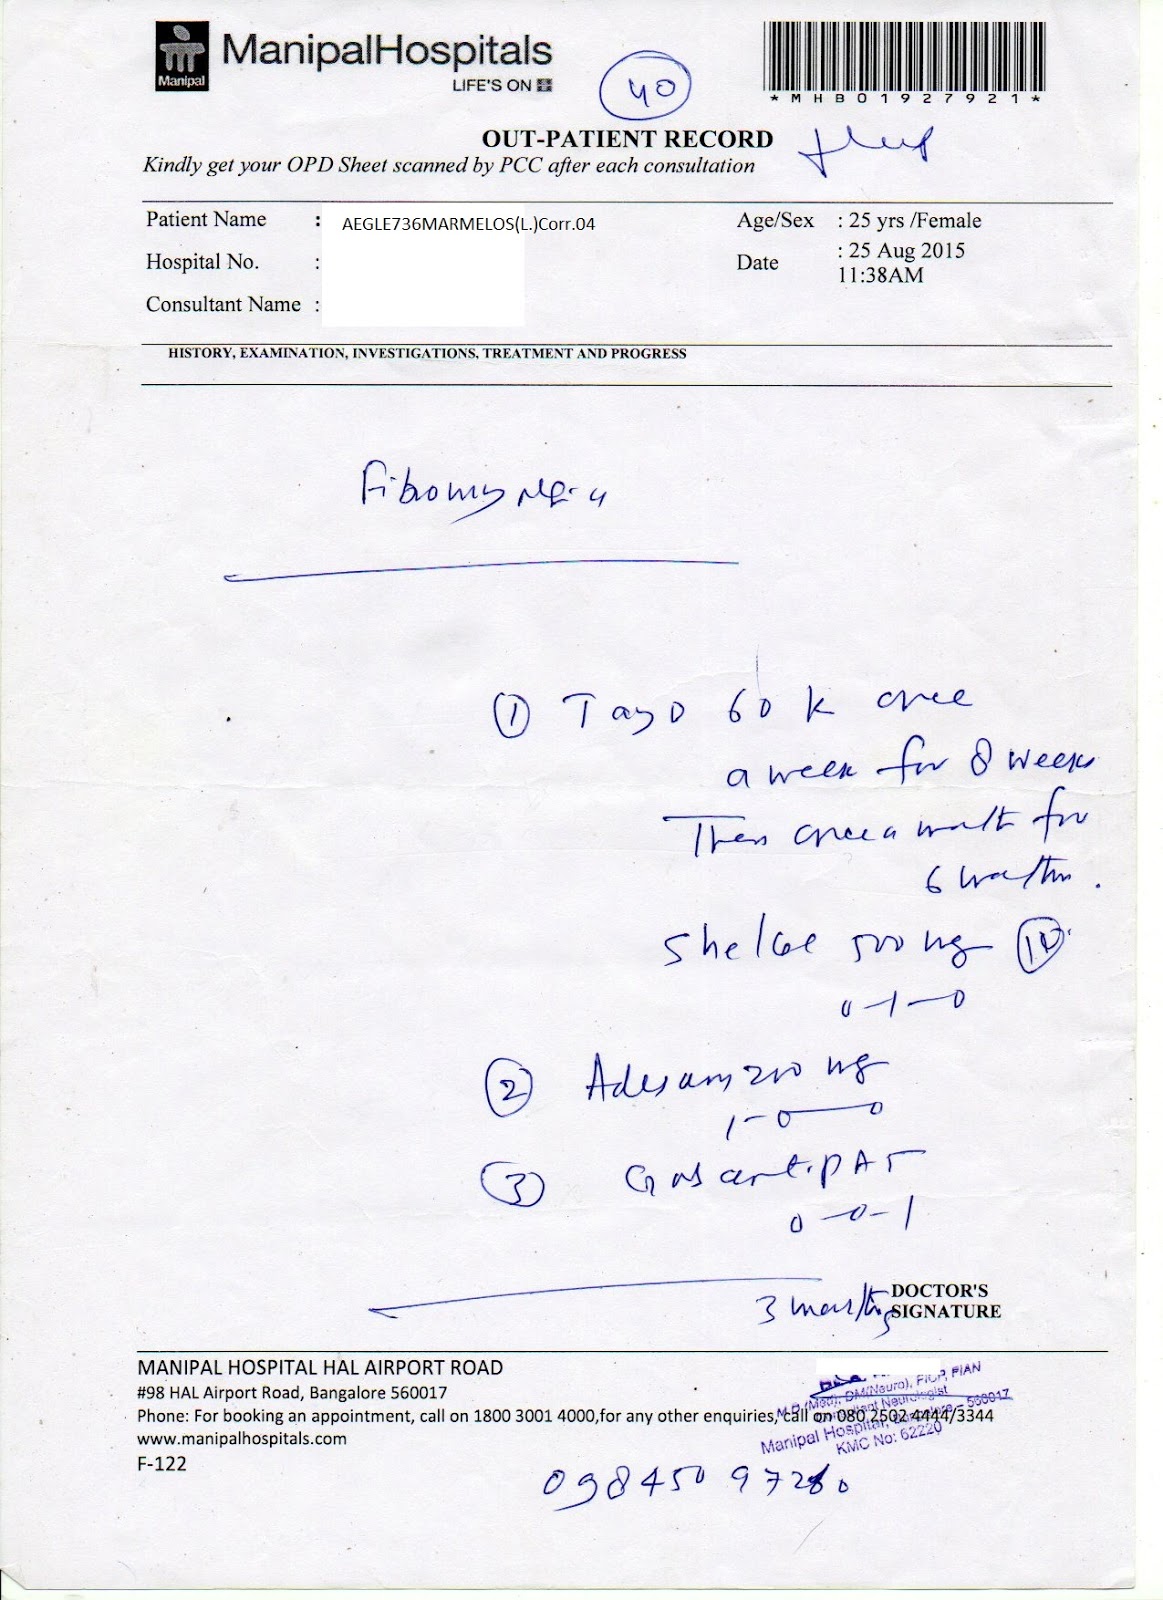 ManipalHospitals
Manipal
LIFE'S ON
40
*MHB01927921*
OUT-PATIENT RECORD
Kindly get your OPD Sheet scanned by PCC after each consultation
Patient Name : AEGLE736MARMELOS(L.)Corr.04
Age/Sex : 25 yrs /Female
Hospital No. :
Date : 25 Aug 2015
11:38AM
Consultant Name :
HISTORY, EXAMINATION, INVESTIGATIONS, TREATMENT AND PROGRESS
① Tayo 60 k once
a week for 8 weeks
Then once a month for
6 months.
Shelcal 500 mg
0-1-0
② 200 mg
1-0-0
③
0-0-1
3 months
DOCTOR'S
SIGNATURE
MANIPAL HOSPITAL HAL AIRPORT ROAD
#98 HAL Airport Road, Bangalore 560017
Phone: For booking an appointment, call on 1800 3001 4000,for any other enquiries, call on 080 2502 4444/3344
www.manipalhospitals.com
F-122
M.D (Med), DM(Neuro), FICP, FIAN
Consultant Neurologist
Manipal Hospital, Bangalore - 560017
KMC No: 62220